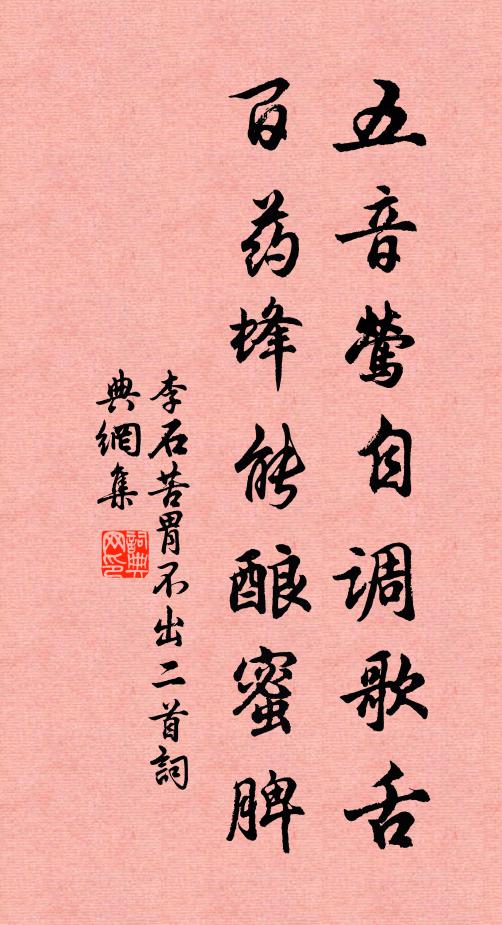 五音莺自调歌舌
百药蜂能酿蜜脾
李石苦胃不出二首詞
典網集
詞典网印